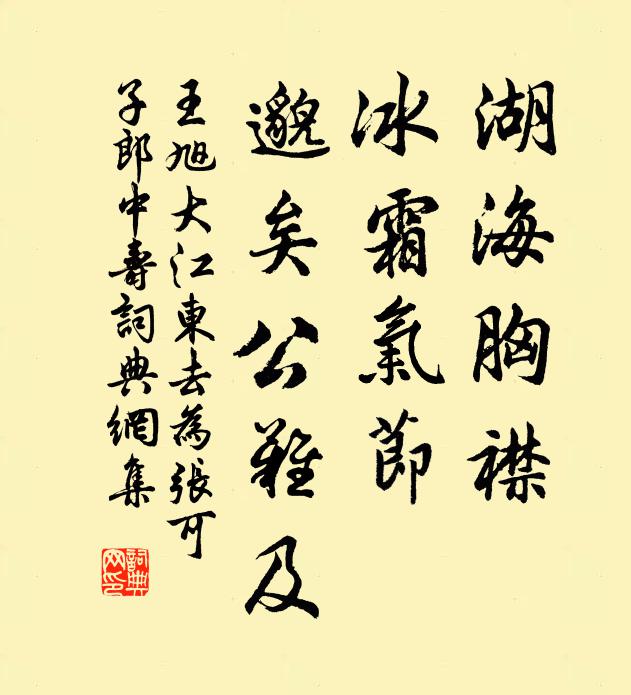 湖海胸襟
冰霜氣節
邈矣公難及
王旭大江東去為張可
子郎中壽詞典網集
詞典網印